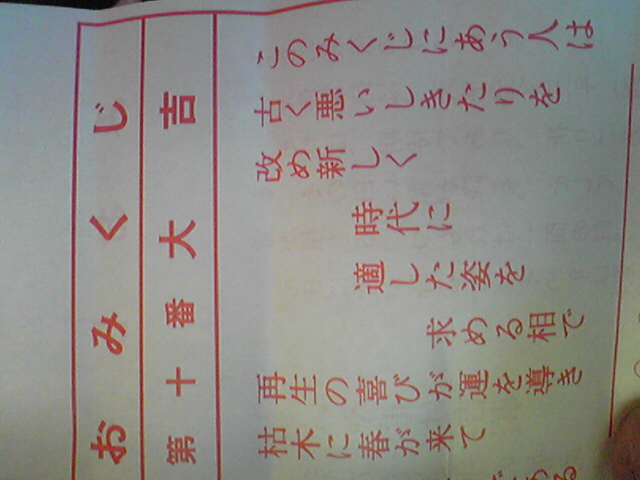 おみくじ
第十番大吉
このみくじにあう人は
古く悪いしきたりを
改め新しく
時代に
適した姿を
求める相で
再生の喜びが運を導き
枯木に春が来て